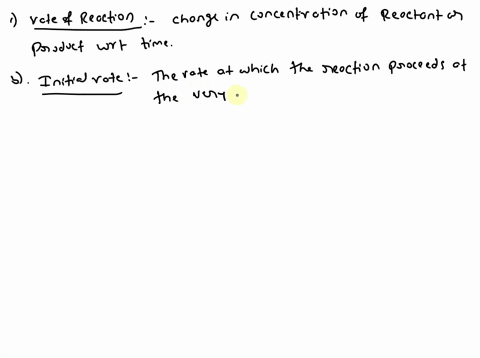 1) rate of Reaction :- change in concentration of Reactant or
product wrt time.
2). Initial rate :- The rate at which the reaction proceeds at
the very